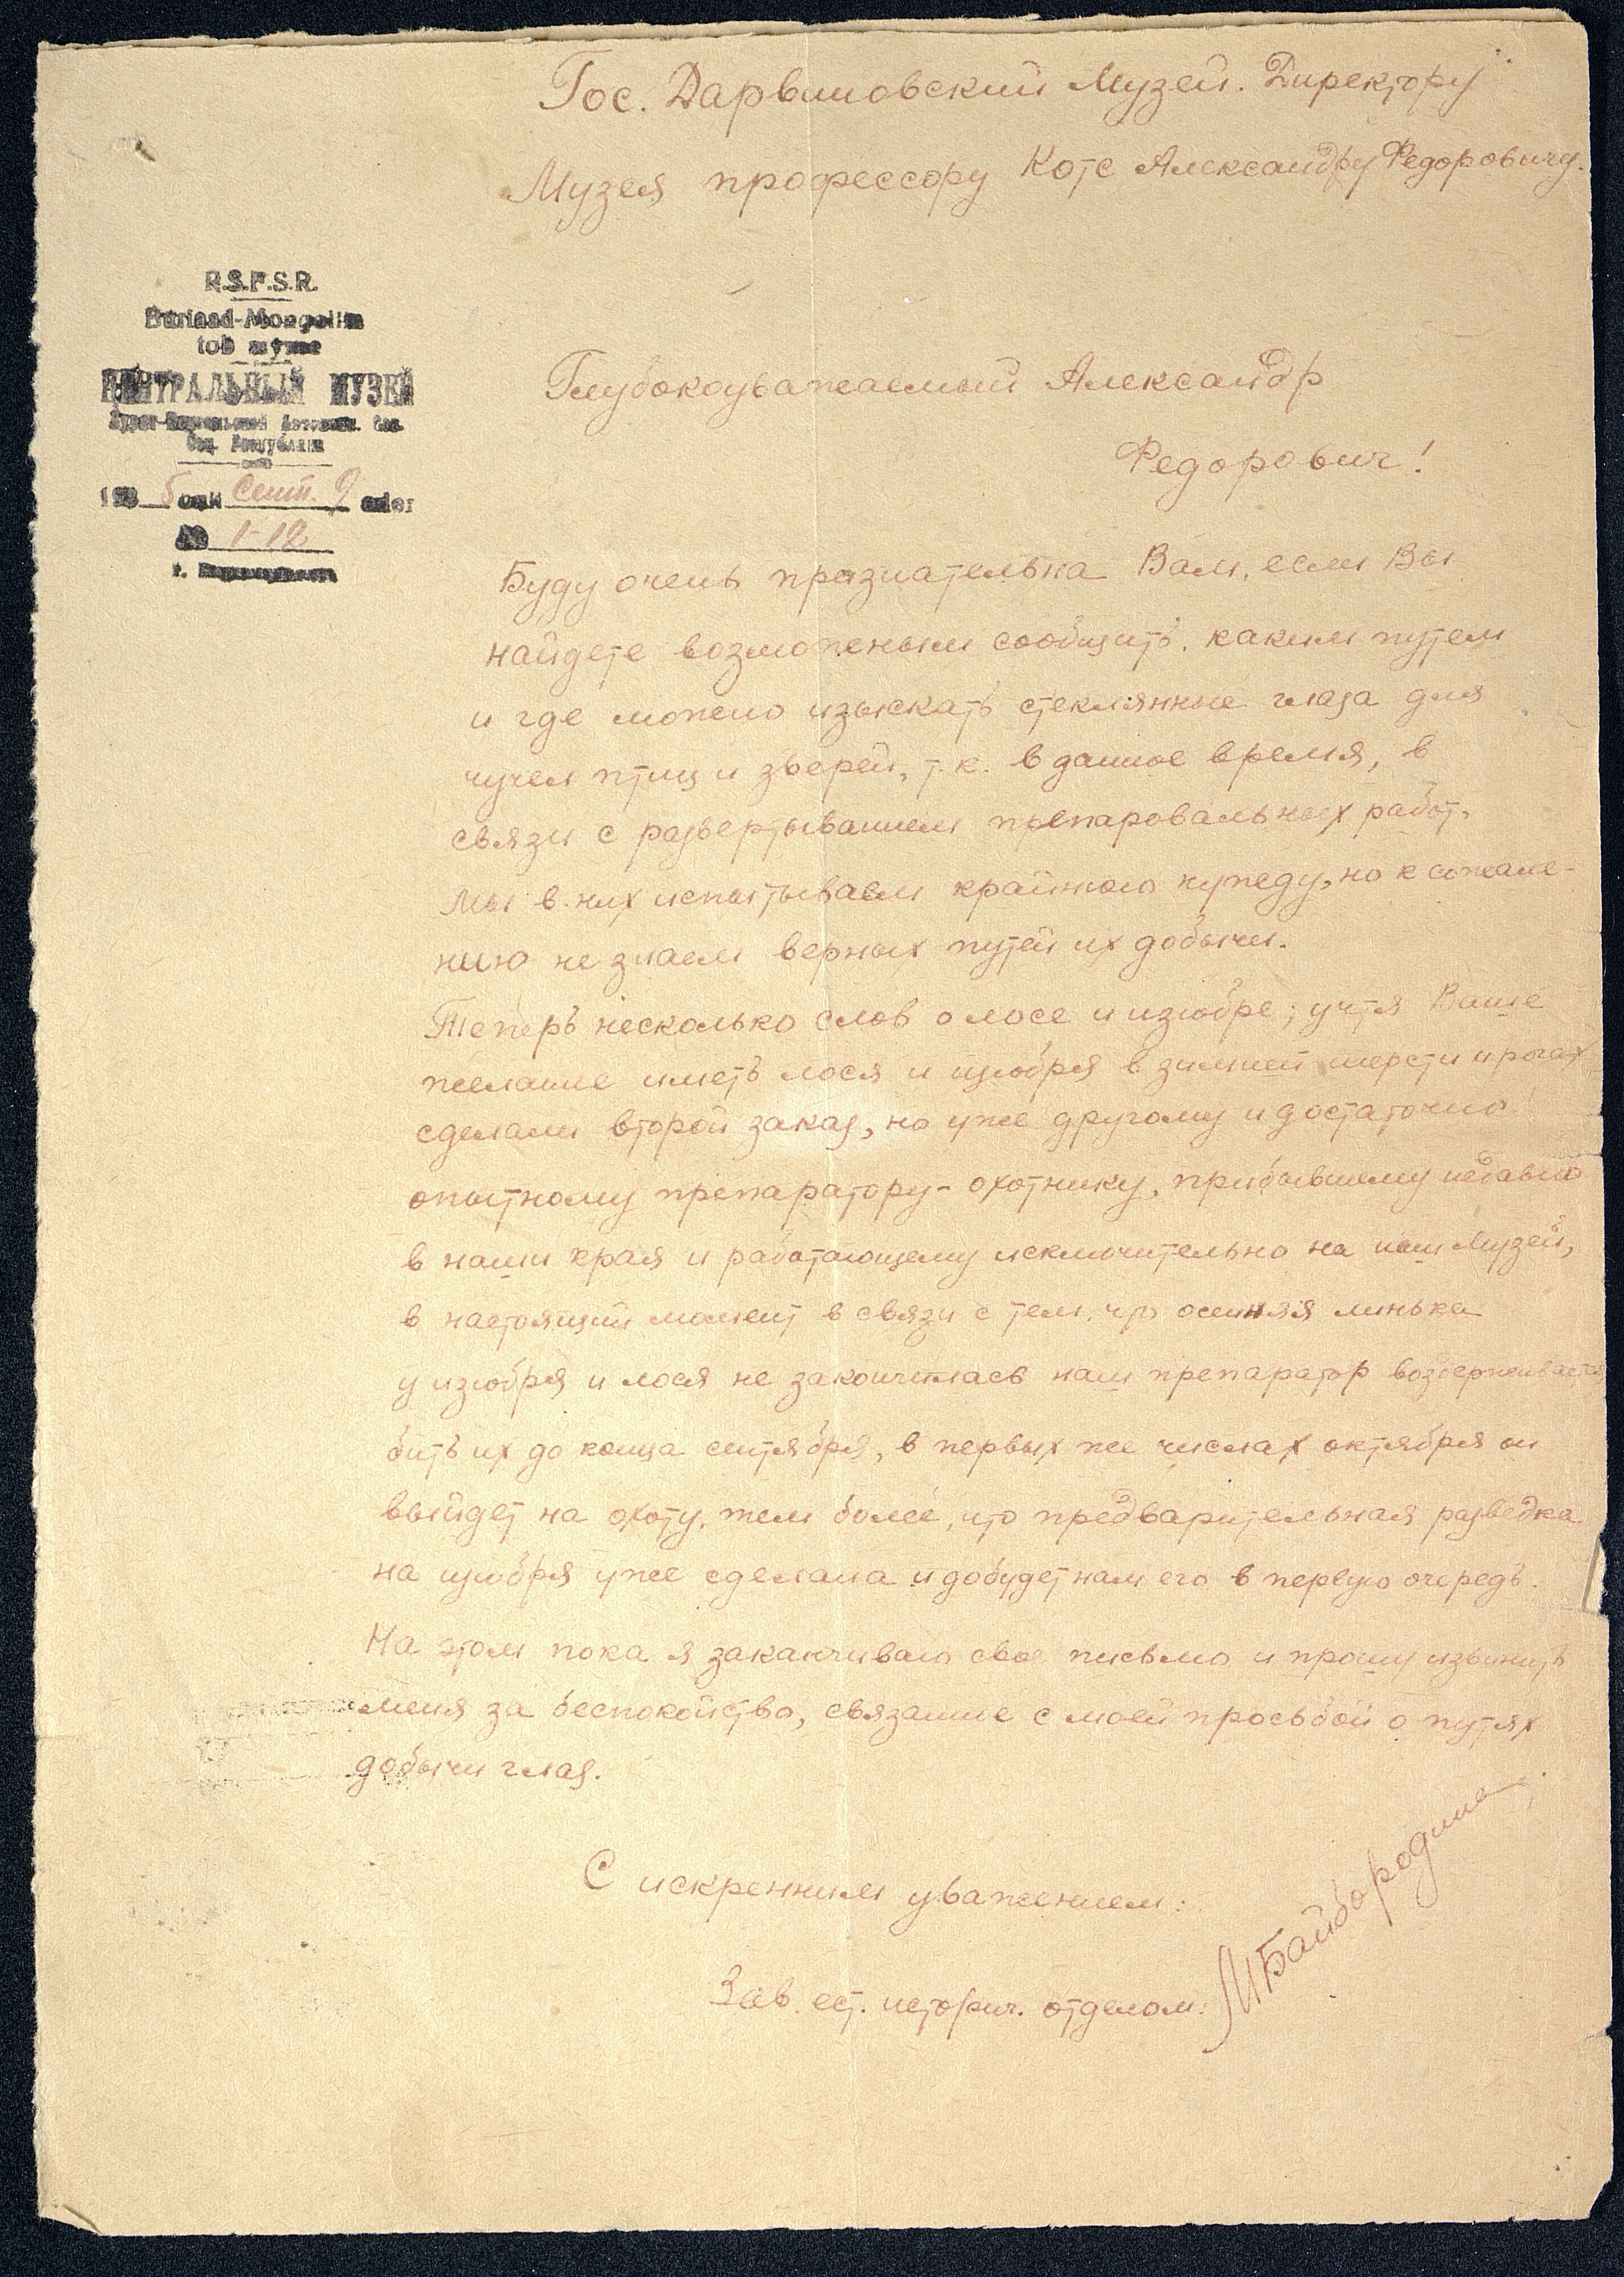 Гос. Дарвиновский Музей. Директору
Музея профессору Котс Александру Федоровичу.
R.S.F.S.R.
Buriaad-Mongolim
tob
ЦЕНТРАЛЬНЫЙ МУЗЕЙ
Бурят-Монгольской Автономн. Сов.
Соц. Республики
193 5 Сент. 9
№ 1-12
г.
Глубокоуважаемый Александр
Федорович!
Буду очень празнательна Вам, если Вы
найдете возможным сообщить, каким путем
и где можно изыскать стеклянные глаза для
чучел птиц и зверей, т.к. в данное время, в
связи с развертыванием препаровальных работ,
мы в них испытываем крайнюю нужду, но к сожале-
нию не знаем верных путей их добычи.
Теперь несколько слов о лосе и изюбре; учтя Ваше
желание иметь лося и изюбря в зимней шерсти и рогах
сделали второй заказ, но уже другому и достаточно
опытному препаратору-охотнику, прибывшему недавно
в наши края и работающему исключительно на наш Музей,
в настоящий момент в связи с тем, что осенняя линька
у изюбря и лося не закончилась наш препаратор воздерживается
бить их до конца сентября, в первых же числах октября он
выйдет на охоту, тем более, что предварительная разведка
на изюбря уже сделана и добудет нам его в первую очередь.
На этом пока я заканчиваю свое письмо и прошу извинить
меня за беспокойство, связанное с моей просьбой о путях
добычи глаз.
С искренним уважением:
Зав. ест. историч. отделом: МБайбородина